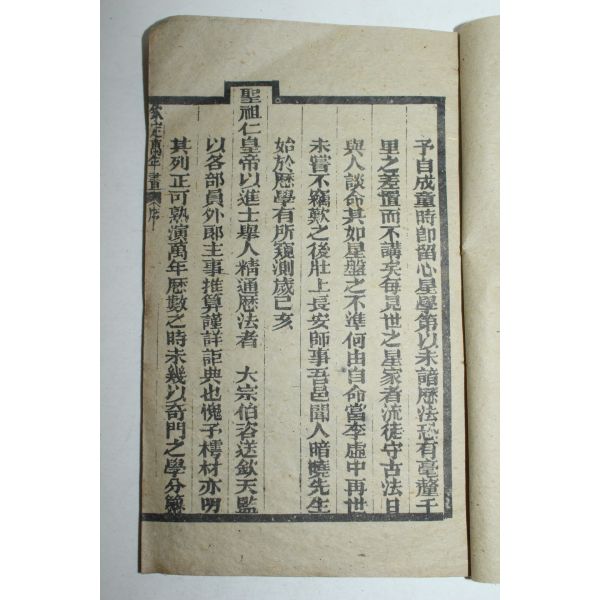 予自成童時卽留心星學第以未諳歷法恐有毫釐千
里之差置而不講矣每見世之星家者流徒守古法日
與人談命其如星盤之不準何由自命當李虛中再世
未嘗不竊歎之後壯上長安師事吾邑聞人暗曉先生
始於歷學有所窺測歲己亥
聖祖仁皇帝以進士舉人精通歷法者 大宗伯咨送欽天監
以各部員外郎主事推算謹詳詎典也愧予樗材亦明
其列正可熟演萬年歷數之時未幾以奇門之學分
欽定萬年書 序